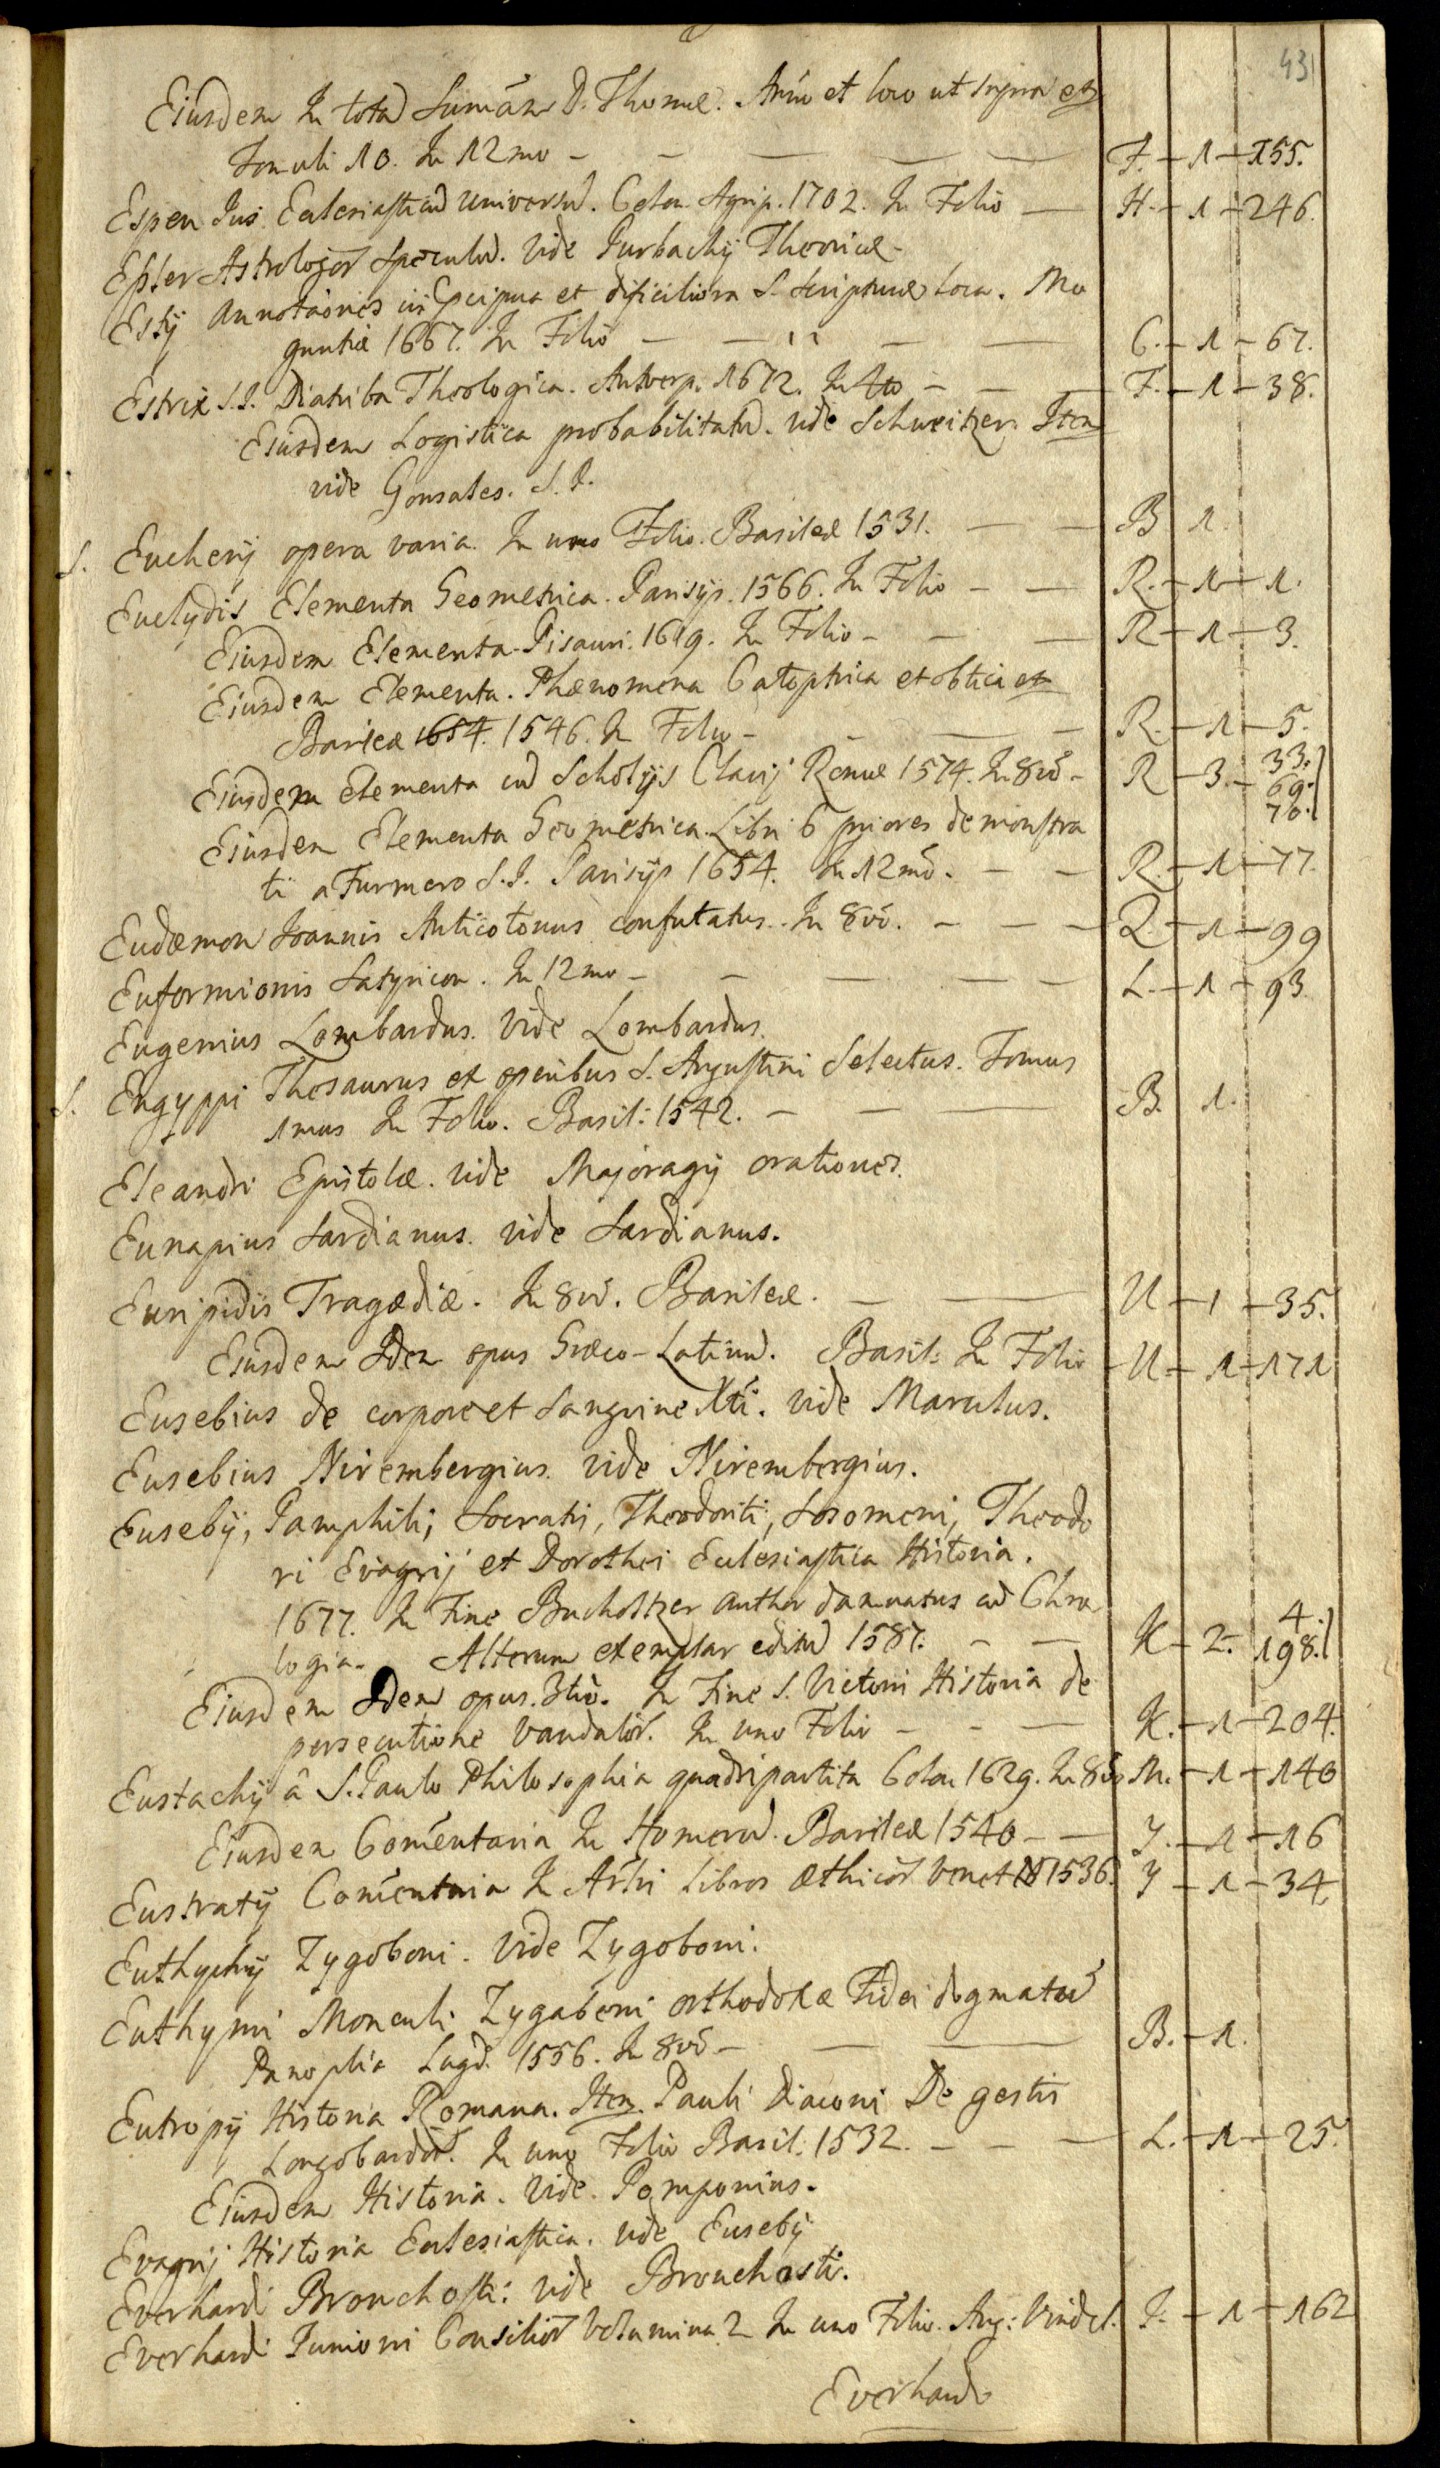 431
Eiusdem In totā Sum̄am D. Thomæ. Anno et loco ut supra et
Tomuli 10. In 12mo - F. - 1 - 155.
Espen Jus Eclesiasticū universū. Colon Agrip. 1702. In Folio - H. - 1 - 246.
Esler Astrologor̄ Speculū. Vide Purbachij Theoricæ -
Estij Annotāones in Præcipua et dificiliora S. Scripturæ Loca. Mo
guntiæ 1667. In Folio - C. - 1 - 67.
Estrix S.J. Diatriba Theologica. Antverp. 1672. In 4to - F. - 1 - 38.
Eiusdem Logistica probabilitatū. vide Schweitzer. Item
vide Gonsales. S.J.
S. Eucherij opera varia. In uno Folio. Basileæ 1531. - B 1.
Euclydis Elementa Geometrica. Parisijs. 1566. In Folio - R. - 1 - 1.
Eiusdem Elementa. Pisauri. 1619. In Folio - R - 1 - 3.
Eiusdem Elementa. Phænomena Catoptrica et obtica et
Basileæ 1654. 1546. In Folio - R. - 1 - 5.
Eiusdem Elementa cū Scholijs Clavij Romæ 1574. In 8vō - R - 3. - 33. 69. 70.
Eiusdem Elementa Geometrica. Libri 6 priores demonstra
ti a Furnero S.J. Parisijs 1654. In 12mō. - R. - 1 - 77.
Eudæmon Joannis Anticotonus confutatus. In 8vō. - Q - 1 - 99
Euformionis Satyricon. In 12mo - L. - 1 - 93.
Eugenius Lombardus. vide Lombardus.
S. Eugyppi Thesaurus ex operibus S. Augustini Selectus. Tomus
1mus In Folio. Basil: 1542. - B. 1.
Eleandri Epistolæ. vide Majoragij orationes.
Eunapius Sardianus. vide Sardianus.
Euripidis Tragædiæ. In 8vō. Basileæ. - U - 1 - 35.
Eiusdem Idem opus Græco-Latinū. Basil: In Folio - U - 1 - 171
Eusebius de corpore et Sanguine Xti. vide Marulus.
Eusebius Nirembergius. vide Nirembergius.
Eusebij, Pamphili, Socratis, Theodoriti, Sosomeni, Theodo
ri Evagrij et Dorothei Eclesiastica Historia.
1677. In Fine Bucholtzer author damnatus cū Chro
logia. Alterum exemplar editū 1587. - K - 2. - 4. 198.
Eiusdem Idem opus. 3tiō. In Fine S. Victoris Historia de
persecutione Vandalor̄. In uno Folio - K. - 1 - 204.
Eustachij â S. Paulo Philosophia quadripartita Colon 1629. In 8vo M. - 1 - 140
Eiusdem Com̄entaria In Homerū. Basileæ 1540 - Y. - 1 - 16
Eustratij Com̄entaria In Arist̄i Libros æthicor̄ Venet 1536. Y - 1 - 34
Euthychij Zygoboni. Vide Zygoboni.
Euthymi Monculi Zygabeni orthodoxæ Fidei dogmatū
Panoplia Lugd. 1556. In 8vō - B. - 1.
Eutropij Historia Romana. Item Pauli Diaconi De gestis
Longobardor̄. In uno Folio Basil: 1532. - L. - 1 - 25.
Eiusdem Historia. vide. Pomponius.
Evagrij Historia Eclesiastica. vide Eusebij
Everhardi Bronchosti: vide Bronchosti.
Everhardi Junioris Consilior̄ Volumina 2 In uno Folio. Aug: Vindel. J. - 1 - 162
Everhardi